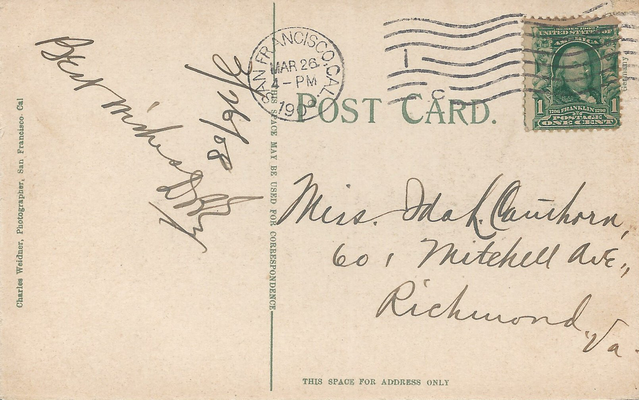 Best wishes
3/26/08
SAN FRANCISCO, CAL.
MAR 26
4-PM
190
1
C
POST CARD.
UNITED STATES OF
1 FRANKLIN 1
POSTAGE
ONE CENT
Germany
Charles Weidner, Photographer, San Francisco Cal
THIS SPACE MAY BE USED FOR CORRESPONDENCE
Miss. Ida L. Cauthorn,
601 Mitchell Ave.,
Richmond,
Va.
THIS SPACE FOR ADDRESS ONLY